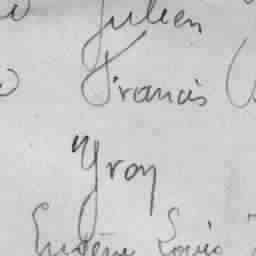 Julien
Francis (
Yvon
Eugène Louis